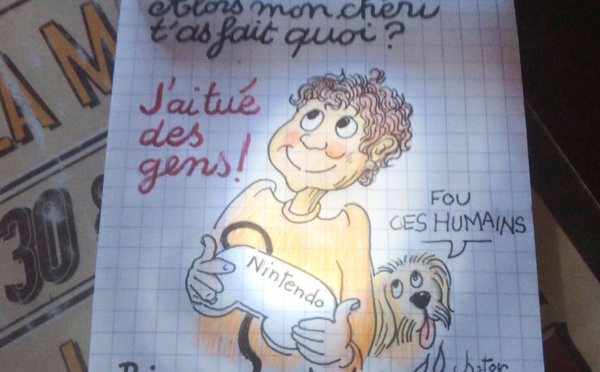 Alors mon chéri
t'as fait quoi ?
J'ai tué
des
gens !
FOU
CES HUMAINS
Nintendo
LA M
30 S